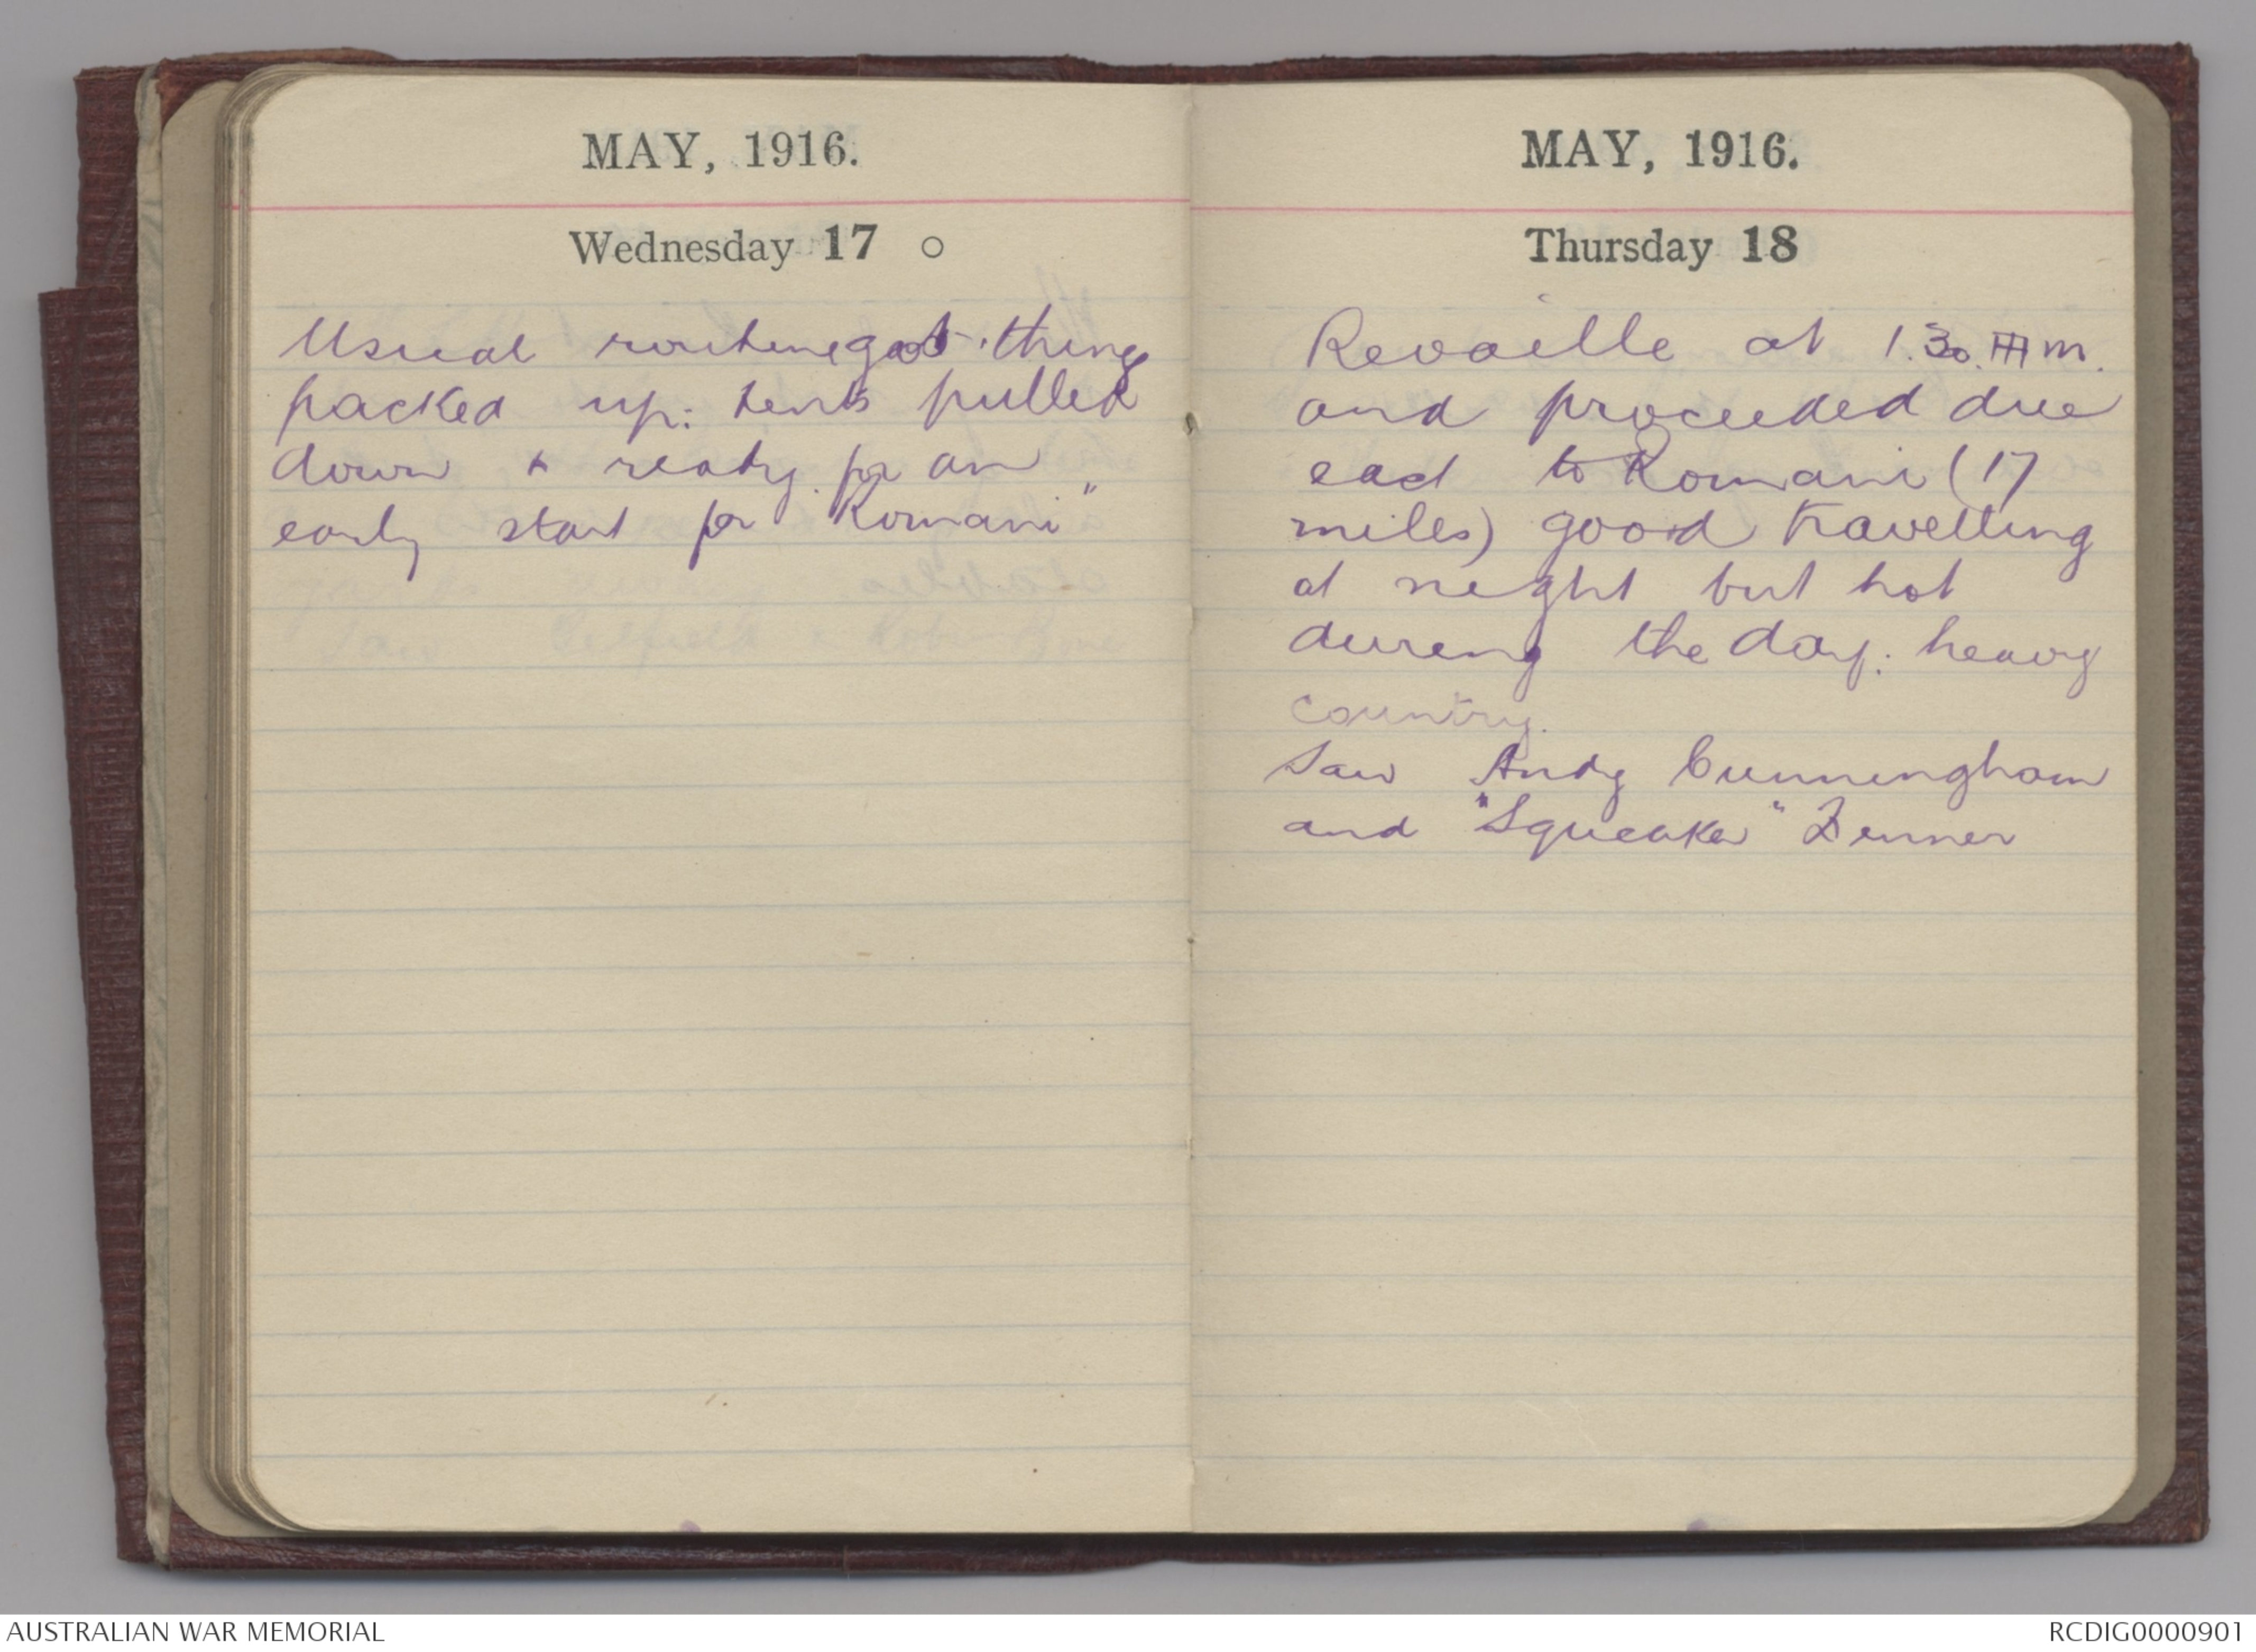 MAY, 1916.
Wednesday 17 ○
Usual routine got things
packed up: tents pulled
down & ready for an
early start for "Romani"
MAY, 1916.
Thursday 18
Revaille at 1.30. m.
and proceeded due
east to Romani (17
miles) good travelling
at night but hot
during the day: heavy
country.
Saw Andy Cunningham
and "Squeaker"
AUSTRALIAN WAR MEMORIAL
RCDIG0000901